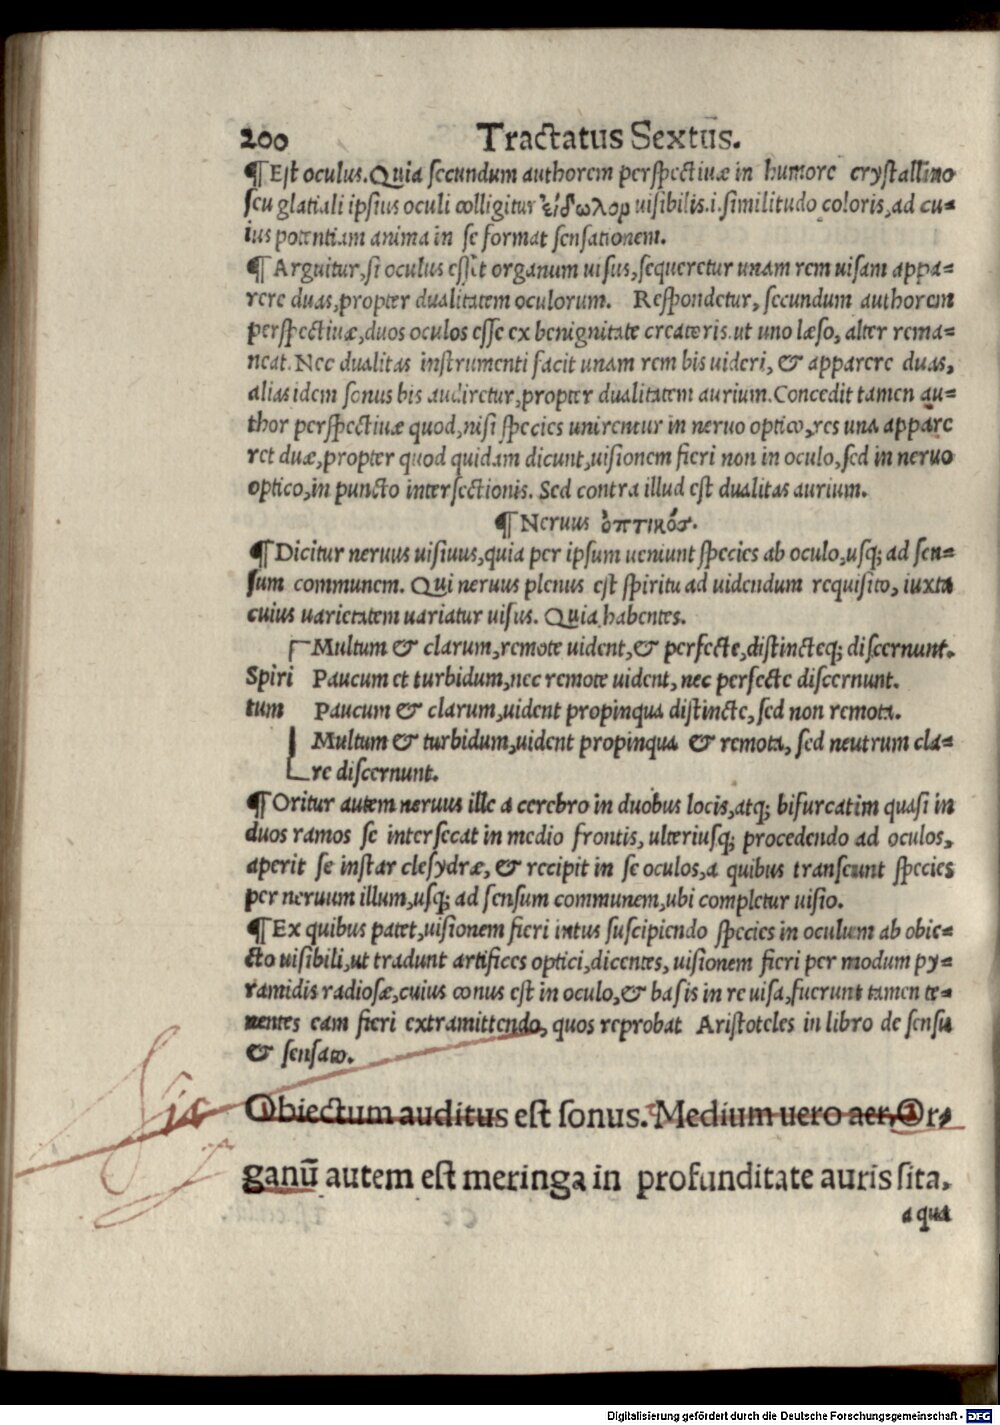 200 Tractatus Sextus.
¶ Est oculus. Quia secundum authorem perspectiuæ in humore crystallino
seu glatiali ipsius oculi colligitur εἴδωλον uisibilis.i.similitudo coloris, ad cu-
ius potentiam anima in se format sensationem.
¶ Arguitur, si oculus esset organum uisus, sequeretur unam rem uisam appa-
rere duas, propter dualitatem oculorum. Respondetur, secundum authorem
perspectiuæ, duos oculos esse ex benignitate creatoris. ut uno læso, alter rema-
neat. Nec dualitas instrumenti facit unam rem bis uideri, & apparere duas,
alias idem sonus bis audiretur, propter dualitatem aurium. Concedit tamen au-
thor perspectiuæ quod, nisi species unirentur in neruo optico, res una appare
ret duæ, propter quod quidam dicunt, uisionem fieri non in oculo, sed in neruo
optico, in puncto intersectionis. Sed contra illud est dualitas aurium.
¶ Neruus ὀπτικός.
¶ Dicitur neruus uisiuus, quia per ipsum ueniunt species ab oculo, usq; ad sen-
sum communem. Qui neruus plenus est spiritu ad uidendum requisito, iuxta
cuius uarietatem uariatur uisus. Quia habentes.
Multum & clarum, remote uident, & perfecte, distincteq; discernunt.
Spiri Paucum et turbidum, nec remote uident, nec perfecte discernunt.
tum Paucum & clarum, uident propinqua distincte, sed non remota.
Multum & turbidum, uident propinqua & remota, sed neutrum cla-
re discernunt.
¶ Oritur autem neruus ille a cerebro in duobus locis, atq; bifurcatim quasi in
duos ramos se intersecat in medio frontis, ulteriusq; procedendo ad oculos,
aperit se instar clesydræ, & recipit in se oculos, a quibus transeunt species
per neruum illum, usq; ad sensum communem, ubi completur uisio.
¶ Ex quibus patet, uisionem fieri intus suscipiendo species in oculum ab obie-
cto uisibili, ut tradunt artifices optici, dicentes, uisionem fieri per modum py-
ramidis radiosæ, cuius conus est in oculo, & basis in re uisa, fuerunt tamen te-
nentes eam fieri extramittendo, quos reprobat Aristoteles in libro de sensu
& sensato.
Sic Obiectum auditus est sonus. Medium uero aer. Or-
ganū autem est meringa in profunditate auris sita,
a qua
Digitalisierung gefördert durch die Deutsche Forschungsgemeinschaft - DFG